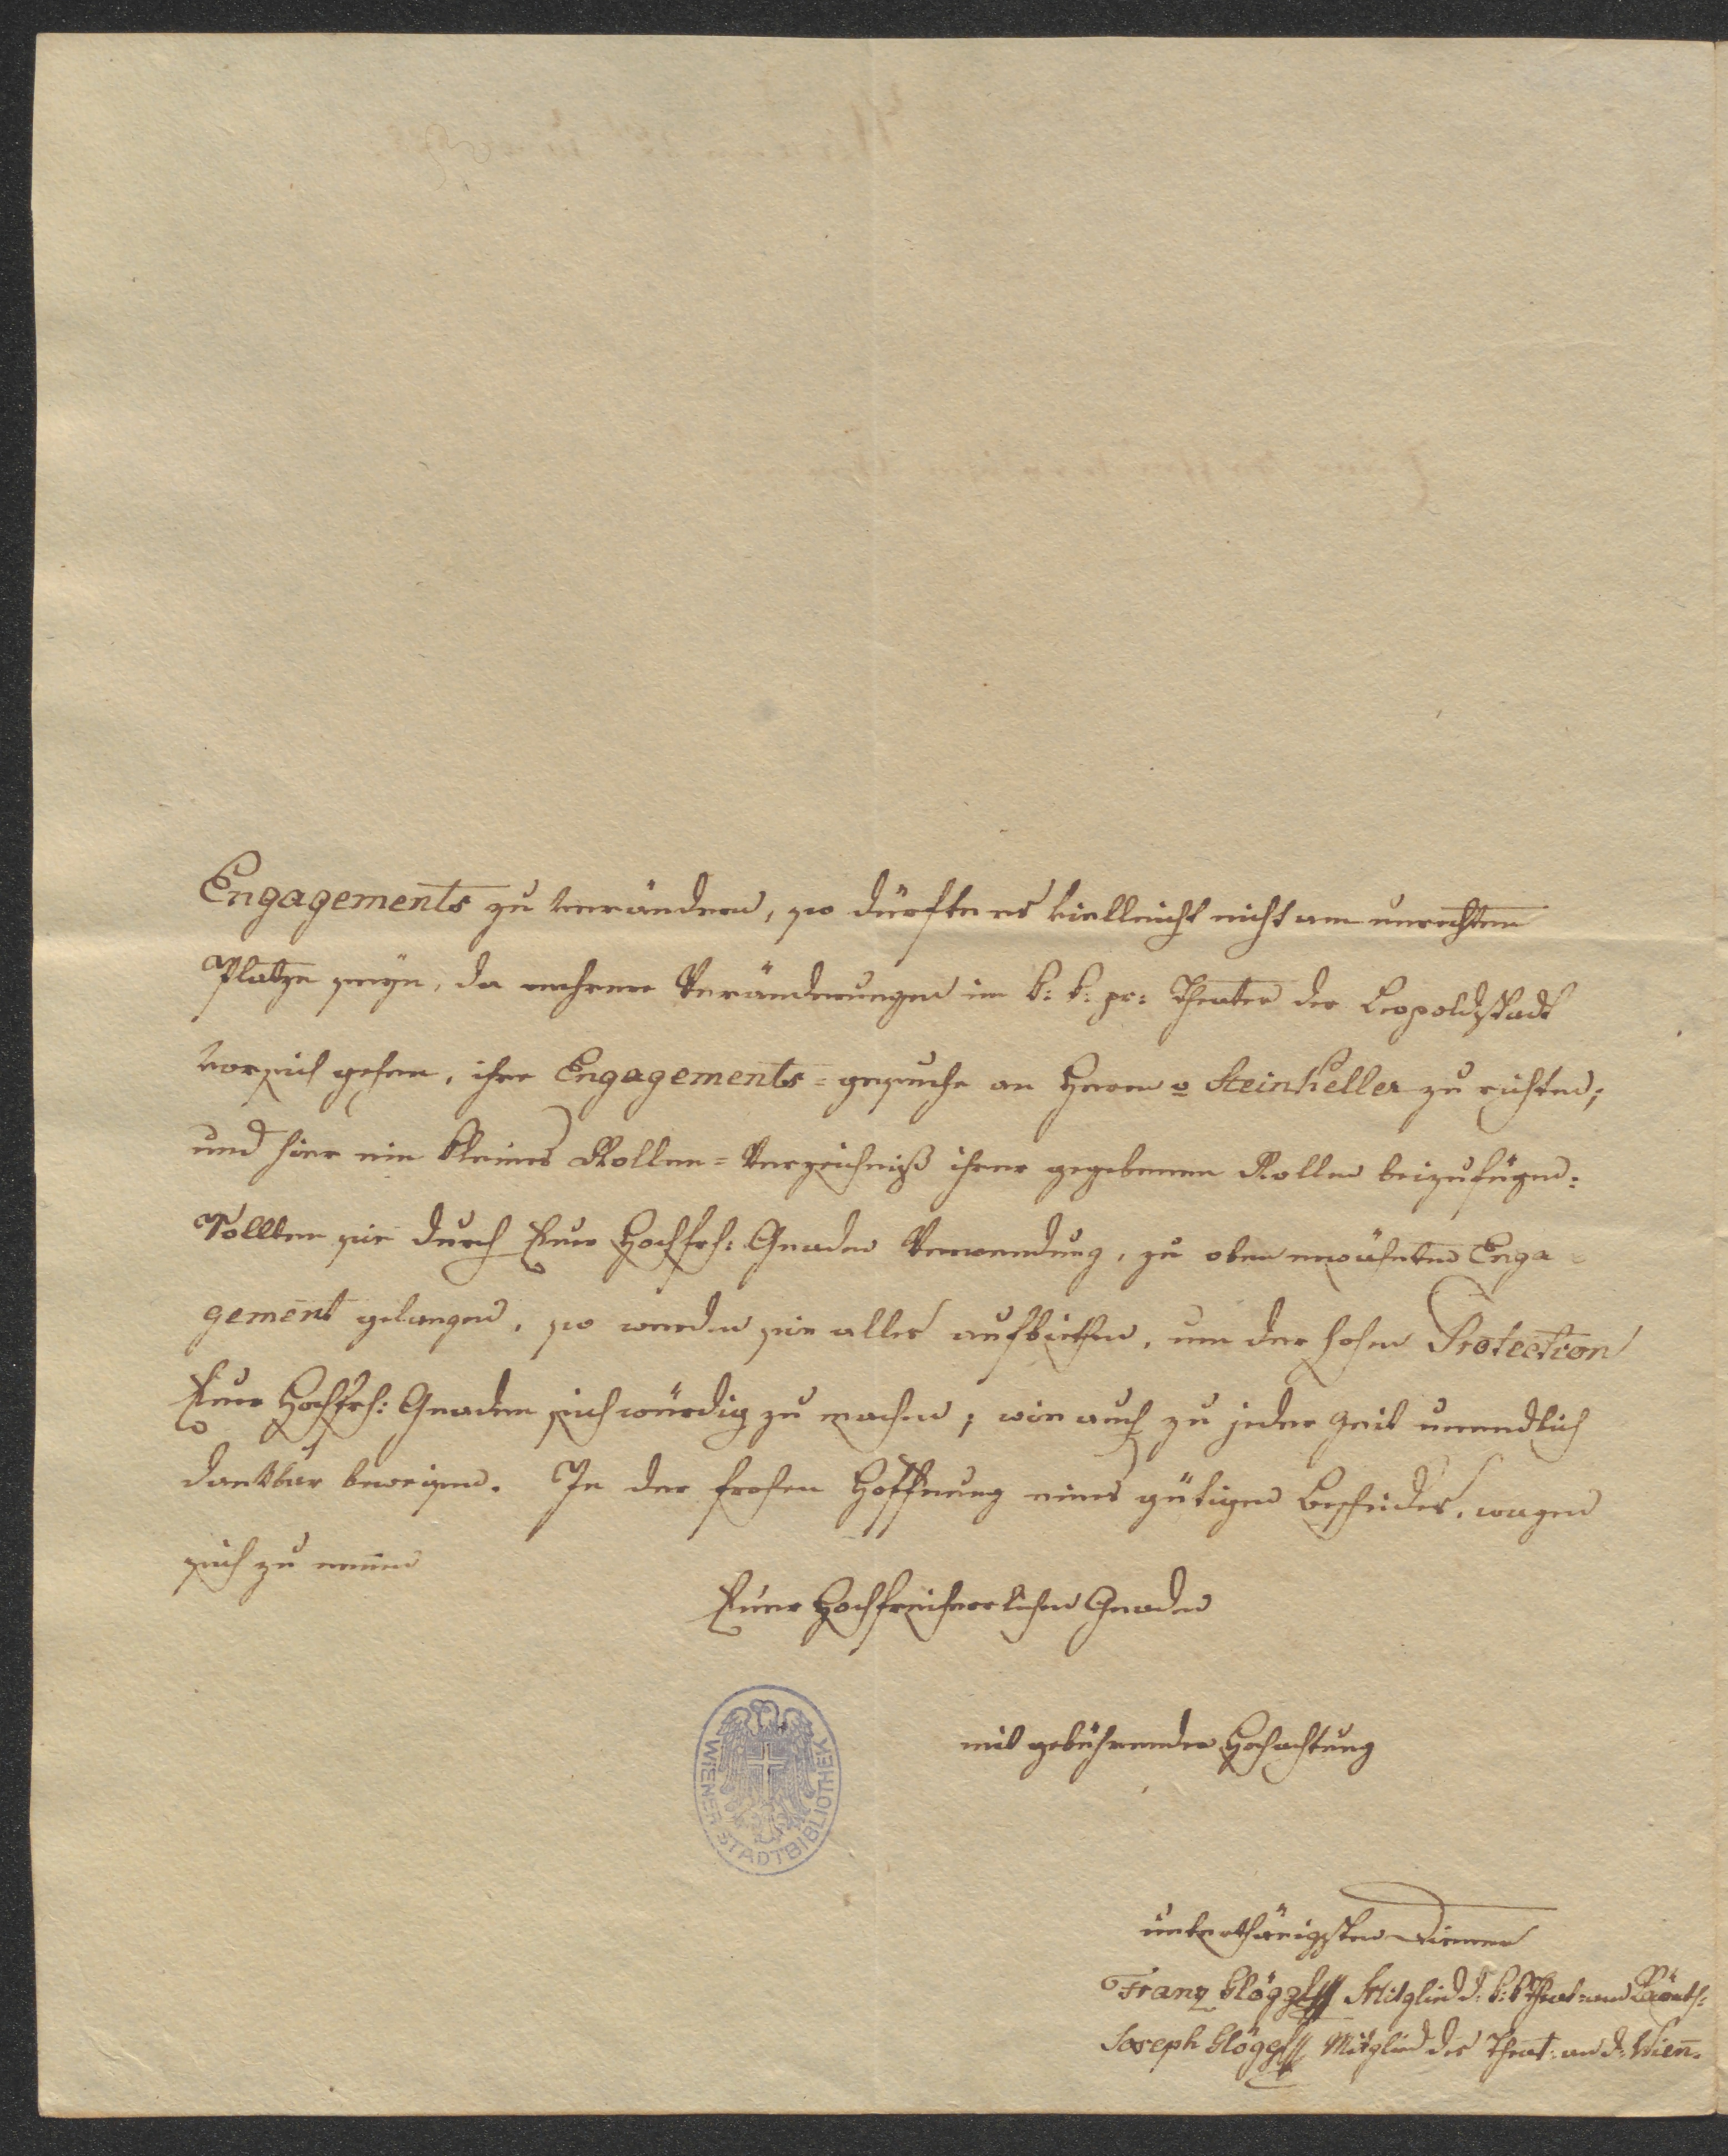 Engagements zu verändern, so dürfte es vielleicht nicht am unrechten
Platze seyn, da mehrere Veränderungen im k: k: pr: Theater der Leopoldstadt
vorsich gehen, ihre Engagements=gesuche an Herrn v Steinkeller zu richten;
und hier ein kleines Rollen=Verzeichniß ihrer gegebenen Rollen beizufügen:
Sollten sie durch Euer Hochfrh: Gnaden Verwendung, zu oben erwähnten Enga
gement gelangen, so werden sie alles aufbiethen, um der hohen Protection
Euer Hochfrh: Gnaden sich würdig zu machen; wie auch zu jeder Zeit unendlich
dankbar beweisen. In der frohen Hoffnung eines gütigen Bescheides, wagen
sich zu nennen
Euer Hochfreiherrlichen Gnaden
mit gebührender Hochachtung
unterthänigsten Diener
Franz Glöggl Mitglied d: k: k Theat: am Kärnth:
Joseph Glöggl Mitglied des Theat: an d: Wien.
WIENER STADTBIBLIOTHEK